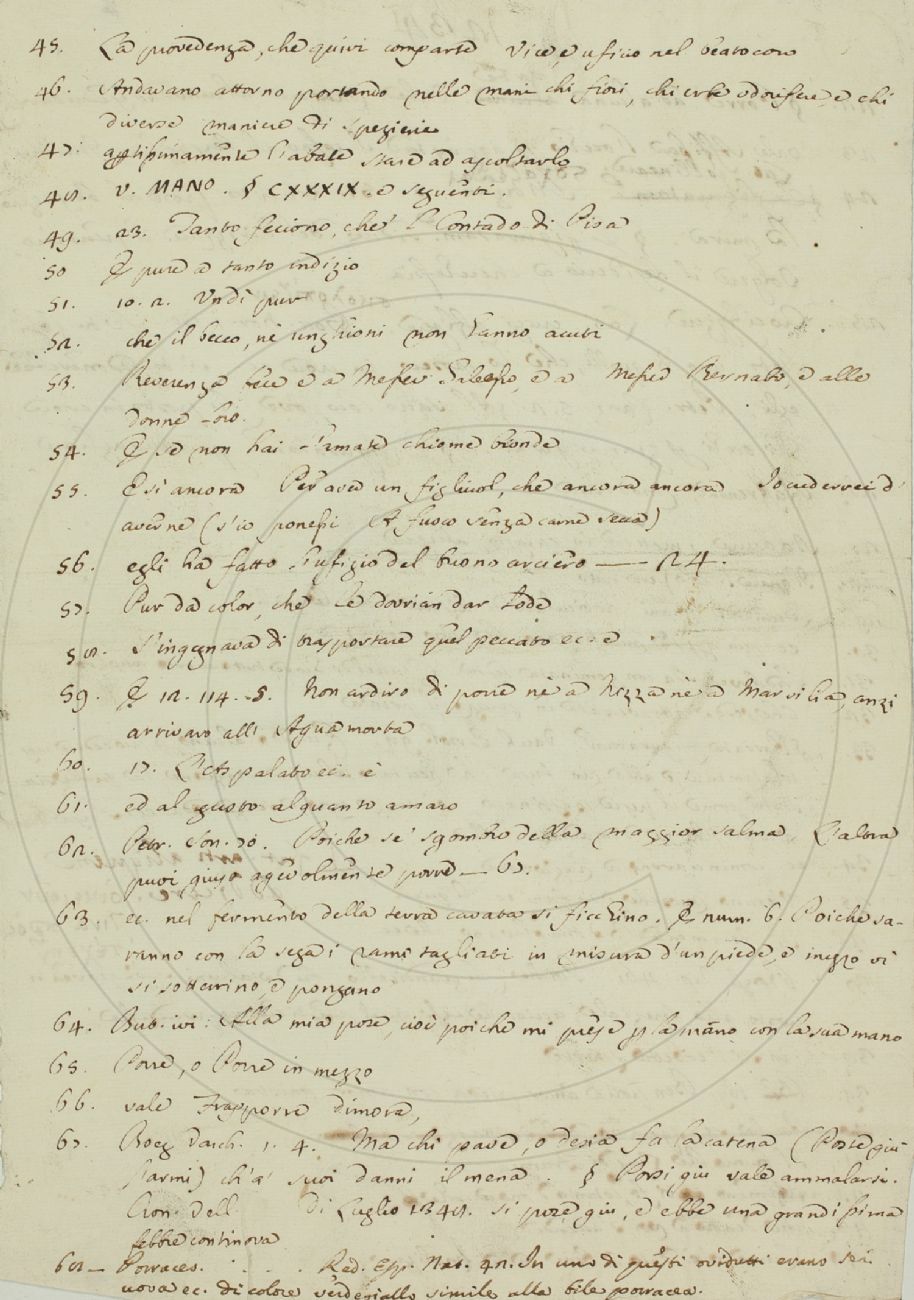 45. La provedenza, che quivi comparte Vice, e uficio nel beato coro
46. Andavano attorno portando nelle mani chi fiori, chi erbe odorifere, e chi
diverse maniere di spezierie
47. l'abate stare ad ascoltarlo
48. v. MANO. § CXXXIX. e seguenti.
49. 23. Tanto feciono, che 'l Contado di Pisa
50 E pure a tanto indizio
51. 10. 2. Un dì pur
52. che il becco, nè unghioni non hanno acuti
53. Reverenza fece e a Messer Galeasso, e a Messer Bernabo, e alle
donne loro.
54. E se non hai l'amate chiome bionde
55. E sì ancora Per aver un figliuol, che ancora ancora Io crederrei d'
averne (s'io ponessi Al fuoco senza carne secca)
56. egli ha fatto l'ufizio del buono arciero — 24.
57. Pur da color, che le dovrian dar lode
58. S'ingegnava di trasportare quel peccato ec. e
59. E 12. 114. 5. Non ardiro di porre nè a Nizza nè a Marsilia, anzi
arrivaro all' Agua morta
60. 17. palato ec. è
61. ed al gusto alquanto amaro
62. Petr. Son. 70. Poichè se' sgombro della maggior salma, L'altra
puoi giuso agevolmente porre — 67.
63. ec. nel fermento della terra cavata si ficchino. E num. 6. Poichè sa-
ranno con la sega i rami tagliati in misura d'un piede, e mezzo vi
si sotterrino, e pongano
64. But. ivi: Alla mia pose, cioè poichè mi prese p la mano con la sua mano
65. Porre, o Porre in mezzo
66. vale Frapporre dimora,
67. Boez. Varch. 1. 4. Ma chi pave, o desia fa la catena (Poste giù
l'armi) ch'a' suoi danni il mena. § Porsi giù vale ammalarsi.
Cron. dell di Luglio 1348. si pose giù, e ebbe una grandissima
febbre continova
68 — Porraceo. . . . Red. Esp. Nat. 42. In uno di questi ovidutti erano sei
uova ec. di colore verdegiallo simile alla bile porracea.